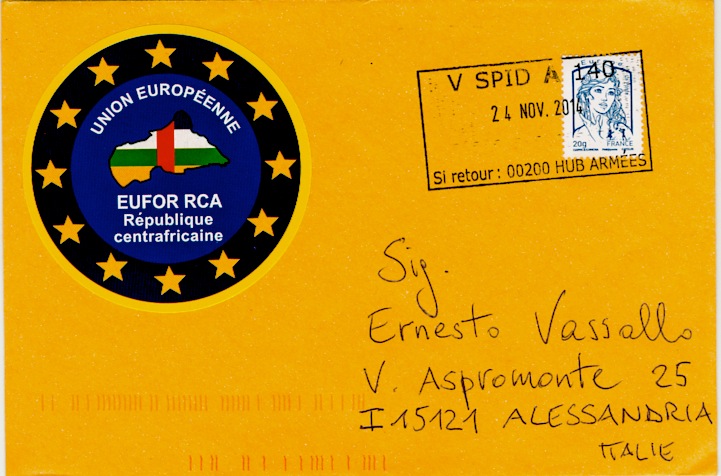 UNION EUROPÉENNE
EUFOR RCA
République
centrafricaine
V SPID A 140
24 NOV. 2014
20g FRANCE
Si retour : 00200 HUB ARMÉES
Sig.
Ernesto Vassallo
V. Aspromonte 25
I 15121 ALESSANDRIA
ITALIE